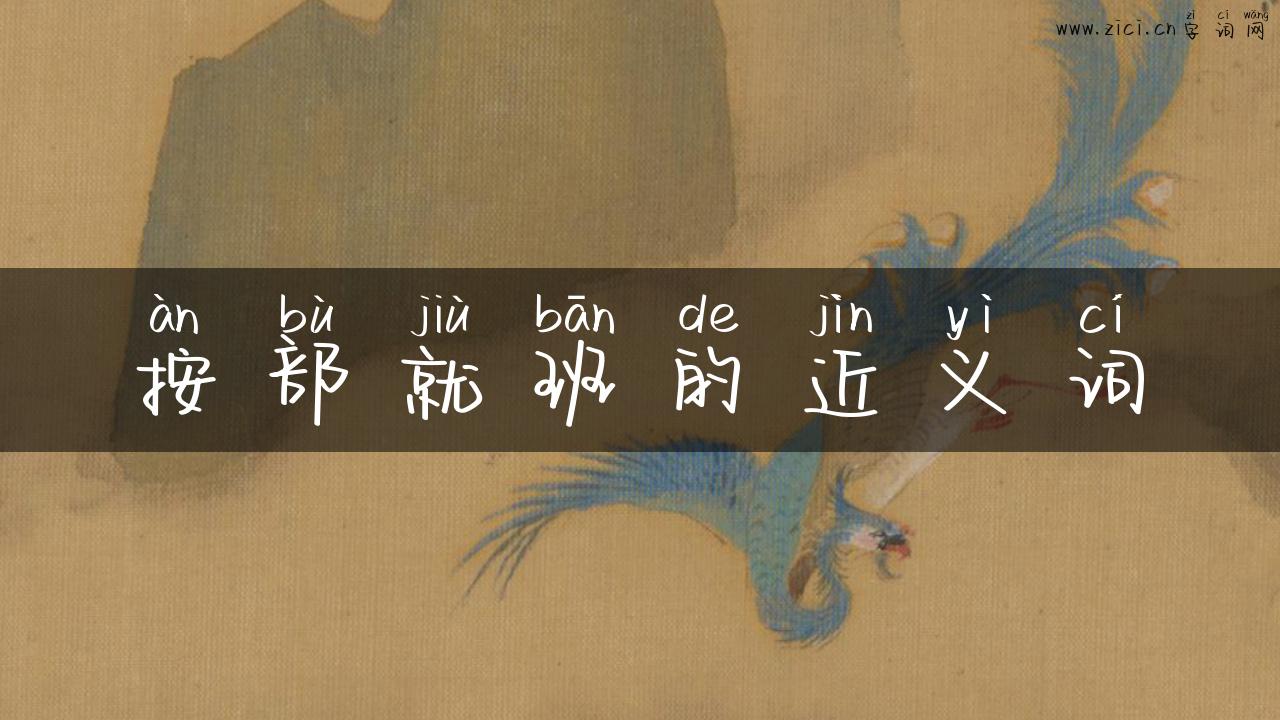 zì cí wǎng
www.zici.cn 字词网
àn bù jiù bān de jìn yì cí
按部就班的近义词